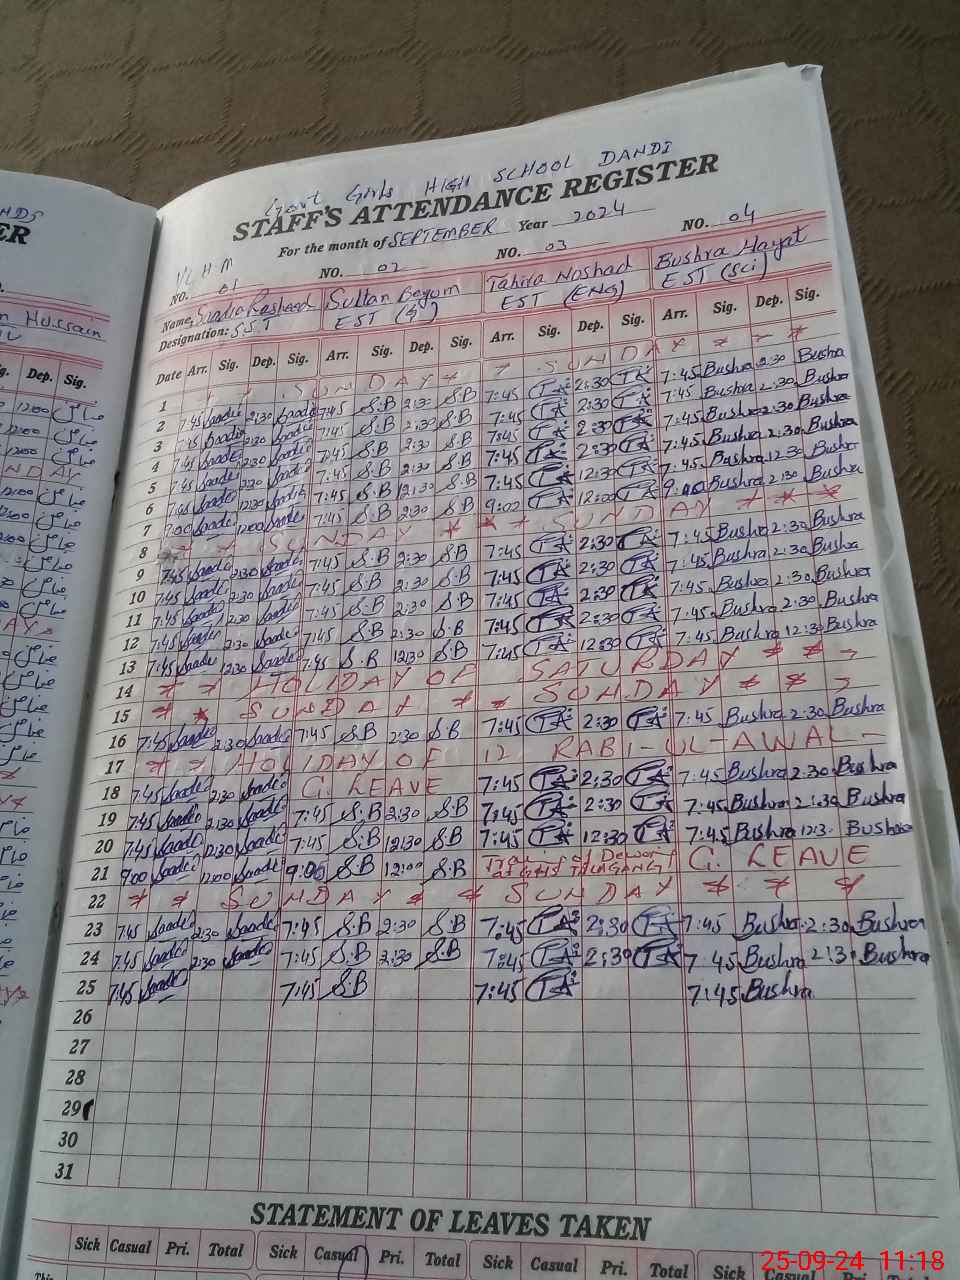 Govt Girls HIGH SCHOOL DANDI
STAFF'S ATTENDANCE REGISTER
For the month of SEPTEMBER Year 2024
NO. 01 NO. 02 NO. 03 NO. 04
Name, Saadia Rasheed Sultan Begum Tahira Noshad Bushra Hayat
Designation: S.S.T EST (G) EST (ENG) EST (Sci)
Date Arr. Sig. Dep. Sig. Arr. Sig. Dep. Sig. Arr. Sig. Dep. Sig. Arr. Sig. Dep. Sig.
1 SUNDAY SUNDAY
2 7:45 Saadia 2:30 Saadia 7:45 S.B 2:30 S.B 7:45 TA 2:30 TA 7:45 Bushra 2:30 Bushra
3 7:45 Saadia 2:30 Saadia 7:45 S.B 2:30 S.B 7:45 TA 2:30 TA 7:45 Bushra 2:30 Bushra
4 7:45 Saadia 2:30 Saadia 7:45 S.B 2:30 S.B 7:45 TA 2:30 TA 7:45 Bushra 2:30 Bushra
5 7:45 Saadia 2:30 Saadia 7:45 S.B 2:30 S.B 7:45 TA 2:30 TA 7:45 Bushra 2:30 Bushra
6 7:45 Saadia 12:30 Saadia 7:45 S.B 12:30 S.B 7:45 TA 12:30 TA 7:45 Bushra 12:30 Bushra
7 9:00 Saadia 12:00 Saadia 7:45 S.B 2:30 S.B 9:02 TA 12:00 TA 9:00 Bushra 2:30 Bushra
8 SUNDAY SUNDAY
9 7:45 Saadia 2:30 Saadia 7:45 S.B 2:30 S.B 7:45 TA 2:30 TA 7:45 Bushra 2:30 Bushra
10 7:45 Saadia 2:30 Saadia 7:45 S.B 2:30 S.B 7:45 TA 2:30 TA 7:45 Bushra 2:30 Bushra
11 7:45 Saadia 2:30 Saadia 7:45 S.B 2:30 S.B 7:45 TA 2:30 TA 7:45 Bushra 2:30 Bushra
12 7:45 Saadia 2:30 Saadia 7:45 S.B 2:30 S.B 7:45 TA 2:30 TA 7:45 Bushra 2:30 Bushra
13 7:45 Saadia 12:30 Saadia 7:45 S.B 12:30 S.B 7:45 TA 12:30 TA 7:45 Bushra 12:30 Bushra
14 HOLIDAY OF SATURDAY
15 SUNDAY SUNDAY
16 7:45 Saadia 2:30 Saadia 7:45 S.B 2:30 S.B 7:45 TA 2:30 TA 7:45 Bushra 2:30 Bushra
17 HOLIDAY OF 12 RABI-UL-AWAL
18 7:45 Saadia 2:30 Saadia C. LEAVE 7:45 TA 2:30 TA 7:45 Bushra 2:30 Bushra
19 7:45 Saadia 2:30 Saadia 7:45 S.B 2:30 S.B 7:45 TA 2:30 TA 7:45 Bushra 2:30 Bushra
20 7:45 Saadia 12:30 Saadia 7:45 S.B 12:30 S.B 7:45 TA 12:30 TA 7:45 Bushra 12:3 Bushra
21 9:00 Saadia 12:00 Saadia 9:05 S.B 12:00 S.B C. LEAVE
22 SUNDAY SUNDAY
23 7:45 Saadia 2:30 Saadia 7:45 S.B 2:30 S.B 7:45 TA 2:30 TA 7:45 Bushra 2:30 Bushra
24 7:45 Saadia 2:30 Saadia 7:45 S.B 2:30 S.B 7:45 TA 2:30 TA 7:45 Bushra 2:30 Bushra
25 7:45 Saadia 7:45 S.B 7:45 TA 7:45 Bushra
26
27
28
29
30
31
STATEMENT OF LEAVES TAKEN
Sick Casual Pri. Total Sick Casual Pri. Total Sick Casual Pri. Total Sick Casual
25-09-24 11:18